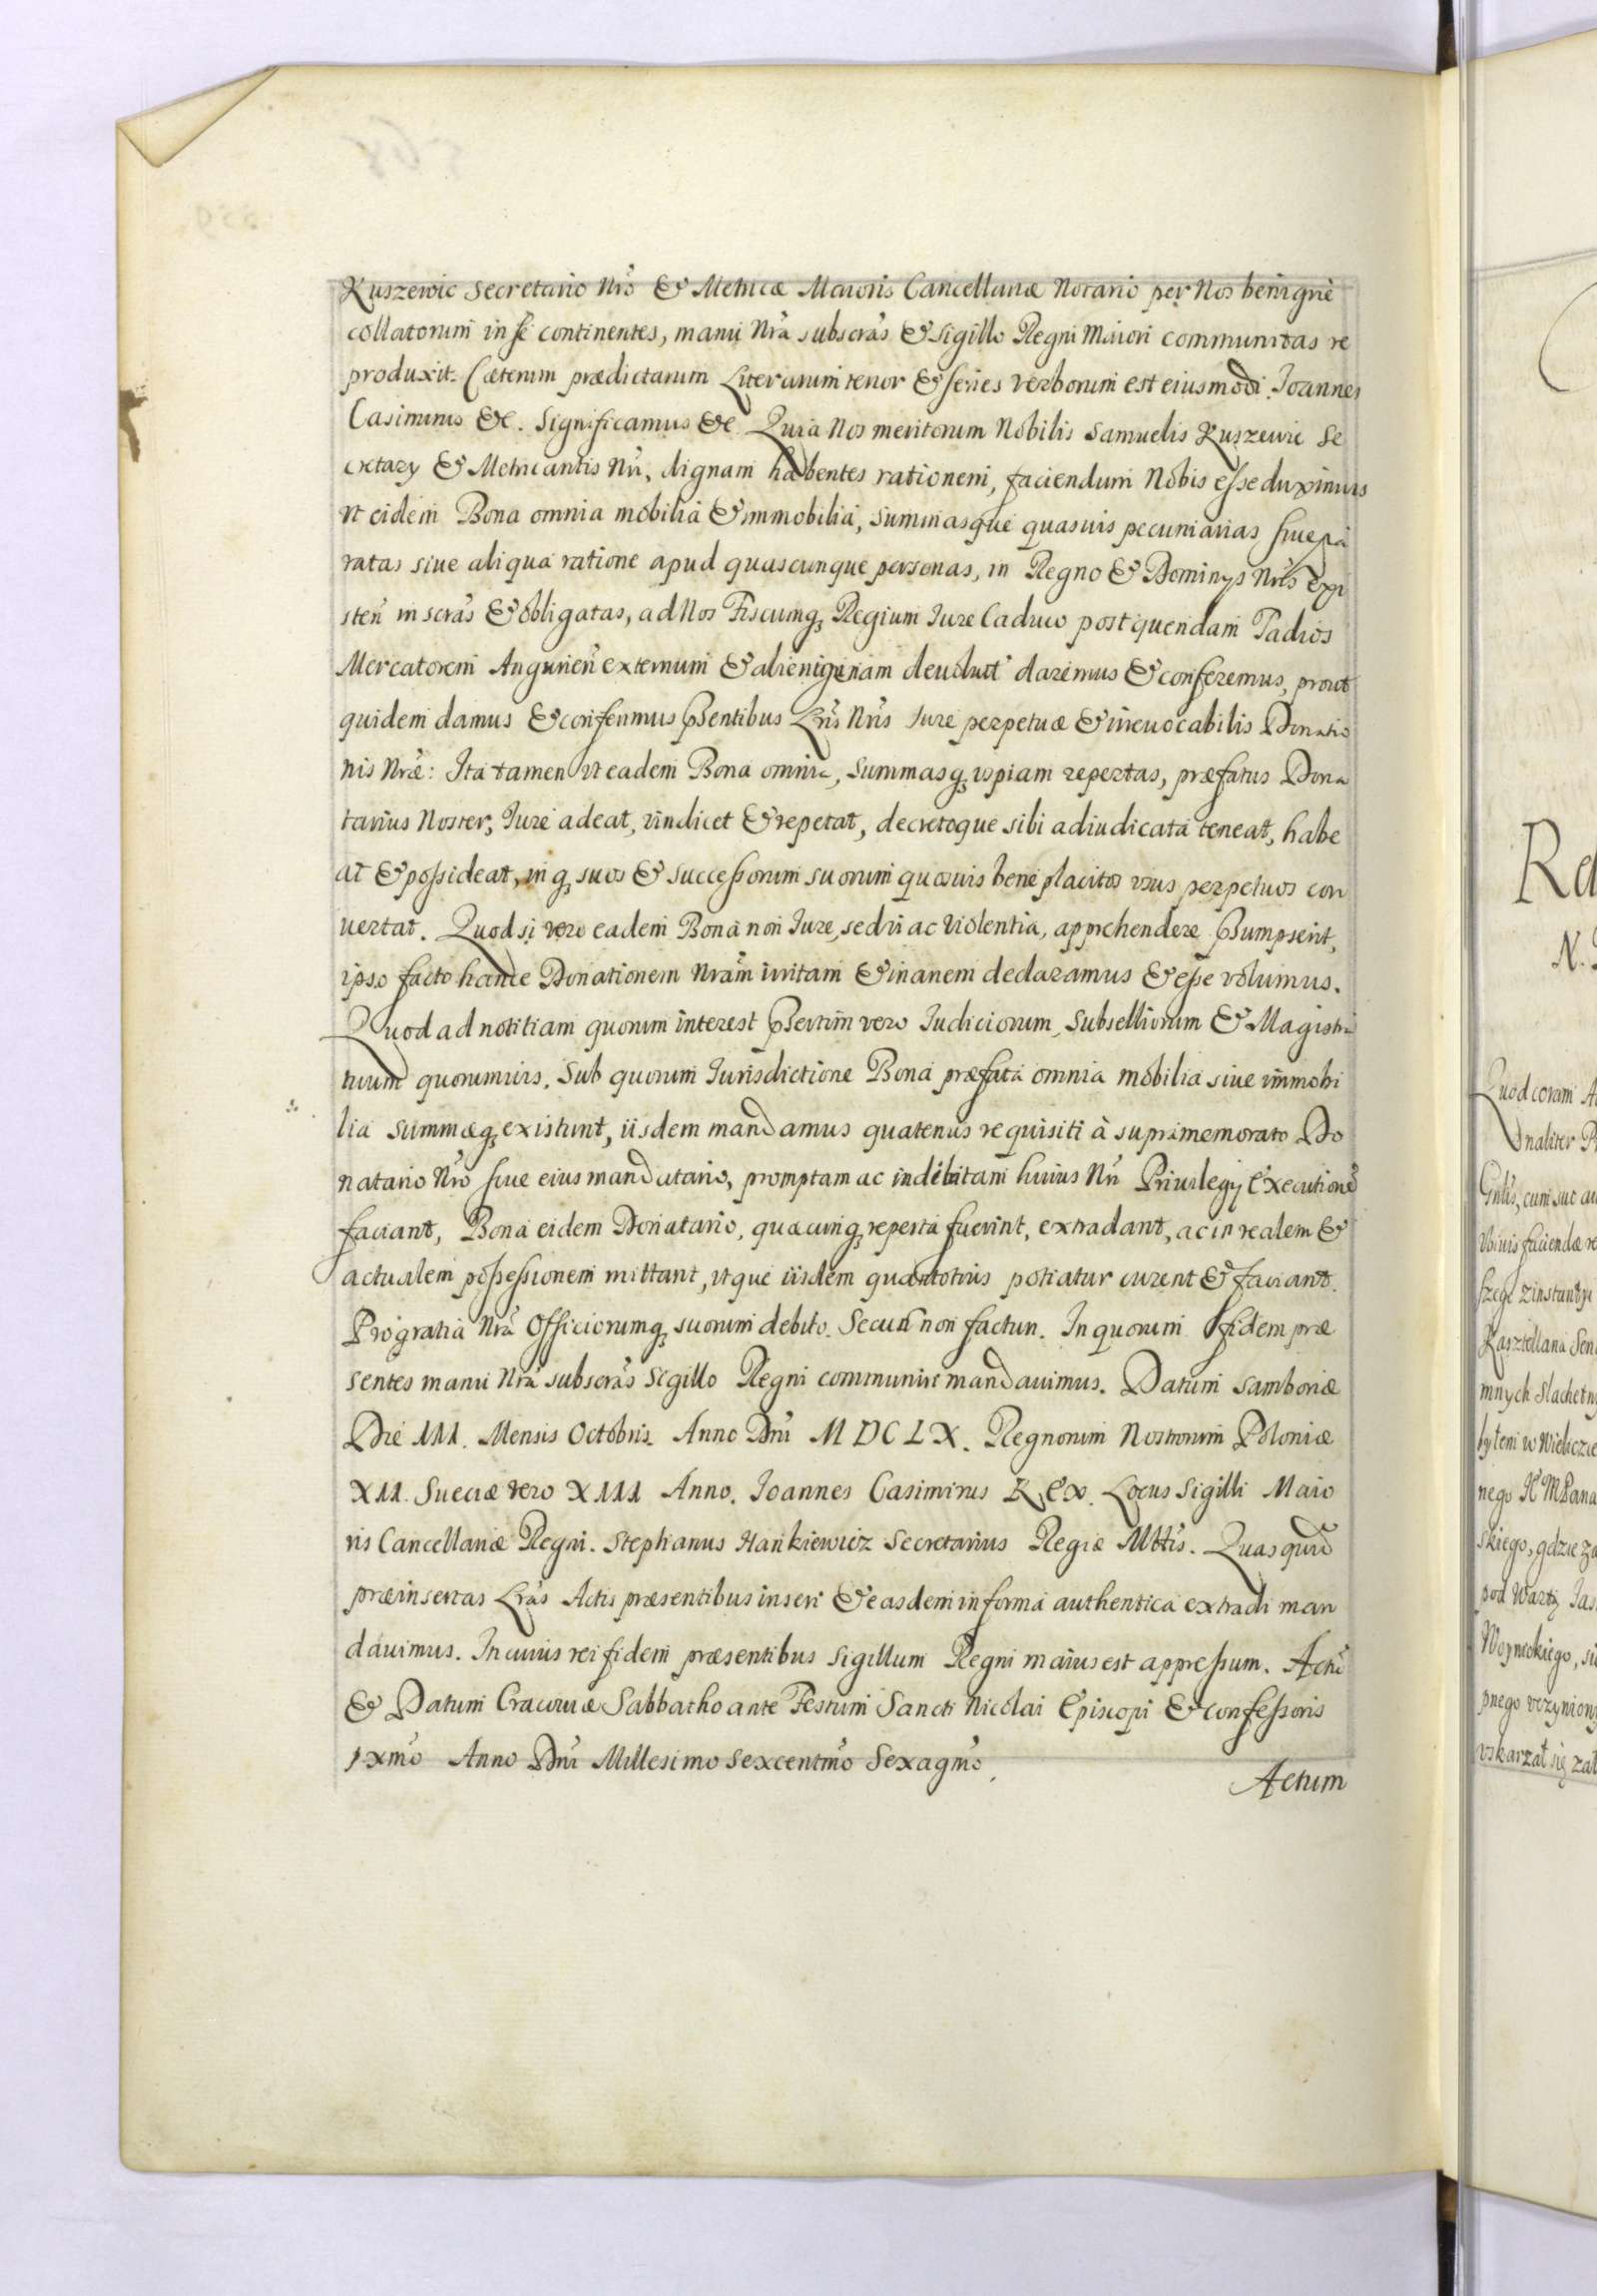 Kuszewic Secretario Nrõ & Metricæ Maioris Cancellariæ Notario per Nos benignè
collatorum in se continentes, manu Nrã subscrãs & Sigillo Regni Maiori communitas re
produxit. Cæterum prædictarum Literarum tenor & series verborum est eiusmodi. Joannes
Casimirus &c. Significamus &c. Quia Nos meritorum Nobilis Samuelis Kuszewic Se
cretary & Metricantis Nri, dignam habentes rationem, faciendum Nobis esse duximus
vt eidem Bona omnia mobilia & immobilia, summasque quasuis pecuniarias siue pa
ratas siue aliqua ratione apud quascunque personas, in Regno & Dominys Nrĩs exi
steñ inscrãs & obligatas, ad Nos Fiscumq, Regium Jure Caduco post quendam Tadios
Mercatorem Angurieñ externum & alienigenam deuolut daremus & conferemus, prout
quidem damus & conferimus Psentibus Lrĩs Nrĩs Jure perpetuæ & irreuocabilis Donatio
nis Nræ: Ita tamen vt eadem Bona omnia, summasq, vspiam repertas, præfatus Dona
tarius Noster, Jure adeat, vindicet & repetat, decretoque sibi adiudicata teneat, habe
at & possideat, inq, suos & successorum suorum quosuis beneplacitos vsus perpetuos con
uertat. Quod si vero eadem Bona non Jure, sed vi ac violentia, apprehendere Psumpserit,
ipso facto hance Donationem Nrãm irritam & inanem declaramus & esse volumus.
Quod ad notitiam quorum interest Psertim vero Judiciorum, Subselliorum & Magistra
tuum quorumuis. Sub quorum Jurisdictione Bona præfata omnia mobilia siue immobi
lia summæq, existunt, iisdem mandamus quatenus requisiti à supramemorato Do
natario Nrõ siue eius mandatario, promptam ac indebitam huius Nri Priuilegij Executionẽ
faciant, Bona eidem Donatario, quæcunq, reperta fuerint, extradant, ac in realem &
actualem possessionem mittant, vtque iisdem quantotius potiatur curent & faciant.
Pro gratia Nrã Officiorumq, suorum debito. Secus non factun. In quorum fidem præ
sentes manu Nrã subscrãs Sigillo Regni communiri mandauimus. Datum Samboriæ
Die III. Mensis Octobris. Anno Dñi MDCLX. Regnorum Nostrorum Poloniæ
XII. Sueciæ vero XIII Anno. Joannes Casimirus REx. Locus Sigilli Maio
ris Cancellariæ Regni. Stephanus Hankiewicz Secretarius Regiæ Mttis. Quasquid
præinsertas Lrãs Actis præsentibus inseri & easdem in forma authentica extradi man
dauimus. In cuius rei fidem præsentibus Sigillum Regni maius est appressum. Actũ
& Datum Cracouiæ Sabbatho ante Festum Sancti Nicolai Episcopi & confessoris
pxmõ Anno Dñi Millesimo Sexcentmõ Sexagmõ.
Actum
Quod coram
Kasztellana
skiego, gdzie
pod Wartą